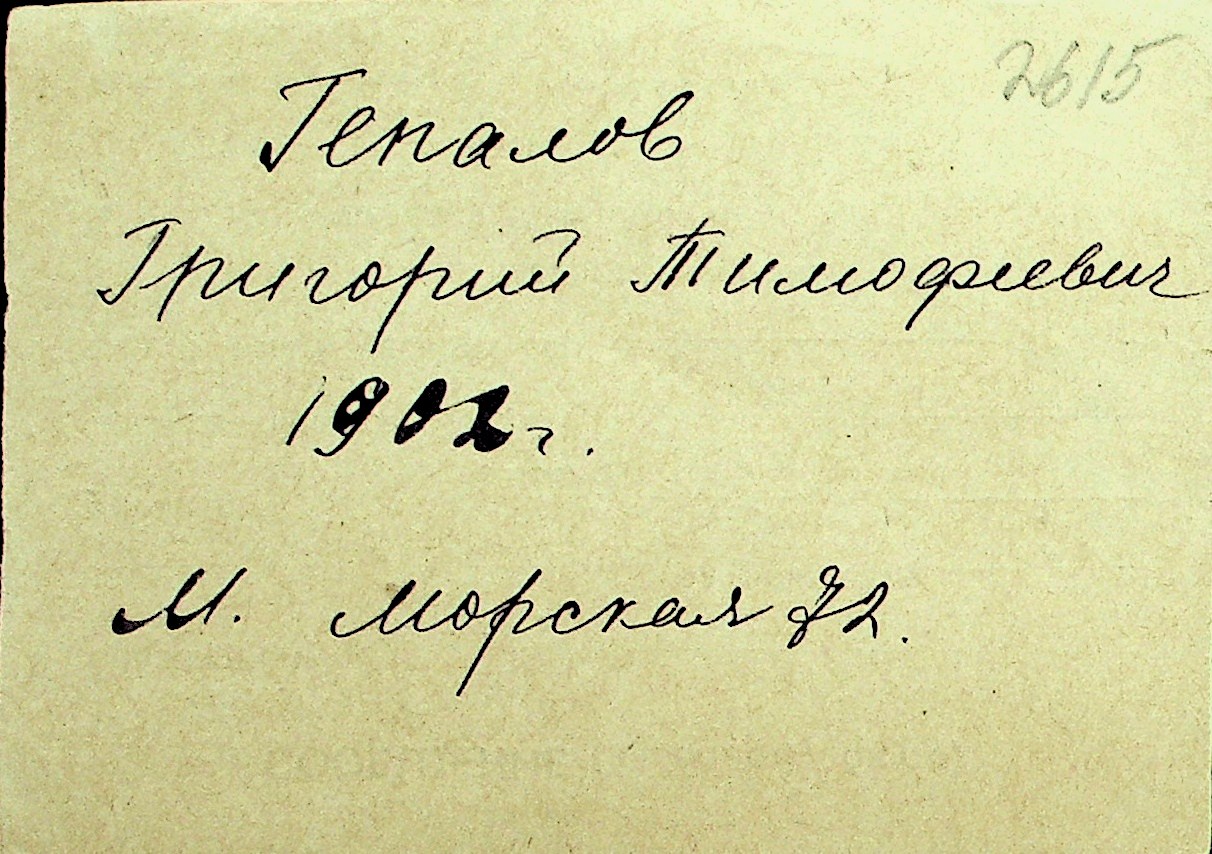 2615
Гепалов
Григорий Тимофеевич
1902 г.
М. Морская 72.